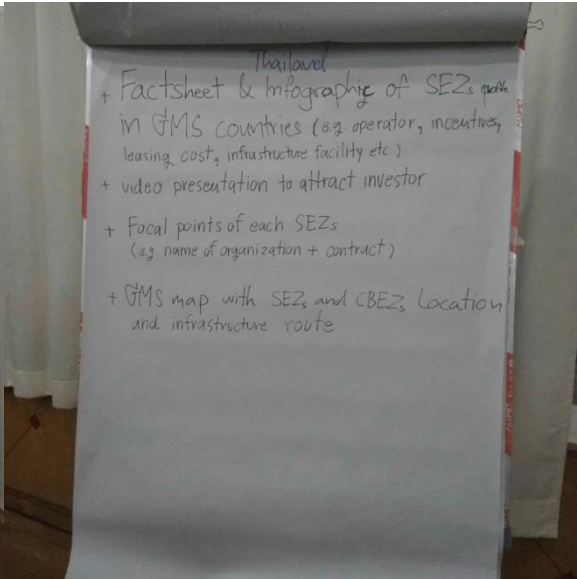 Thailand
+ Factsheet & Infographic of SEZs profile
in GMS countries (e.g. operator, incentives,
leasing cost, infrastructure facility etc.)
+ video presentation to attract investor
+ Focal points of each SEZs
(e.g name of organization + contract)
+ GMS map with SEZs and CBEZs Location
and infrastructure route